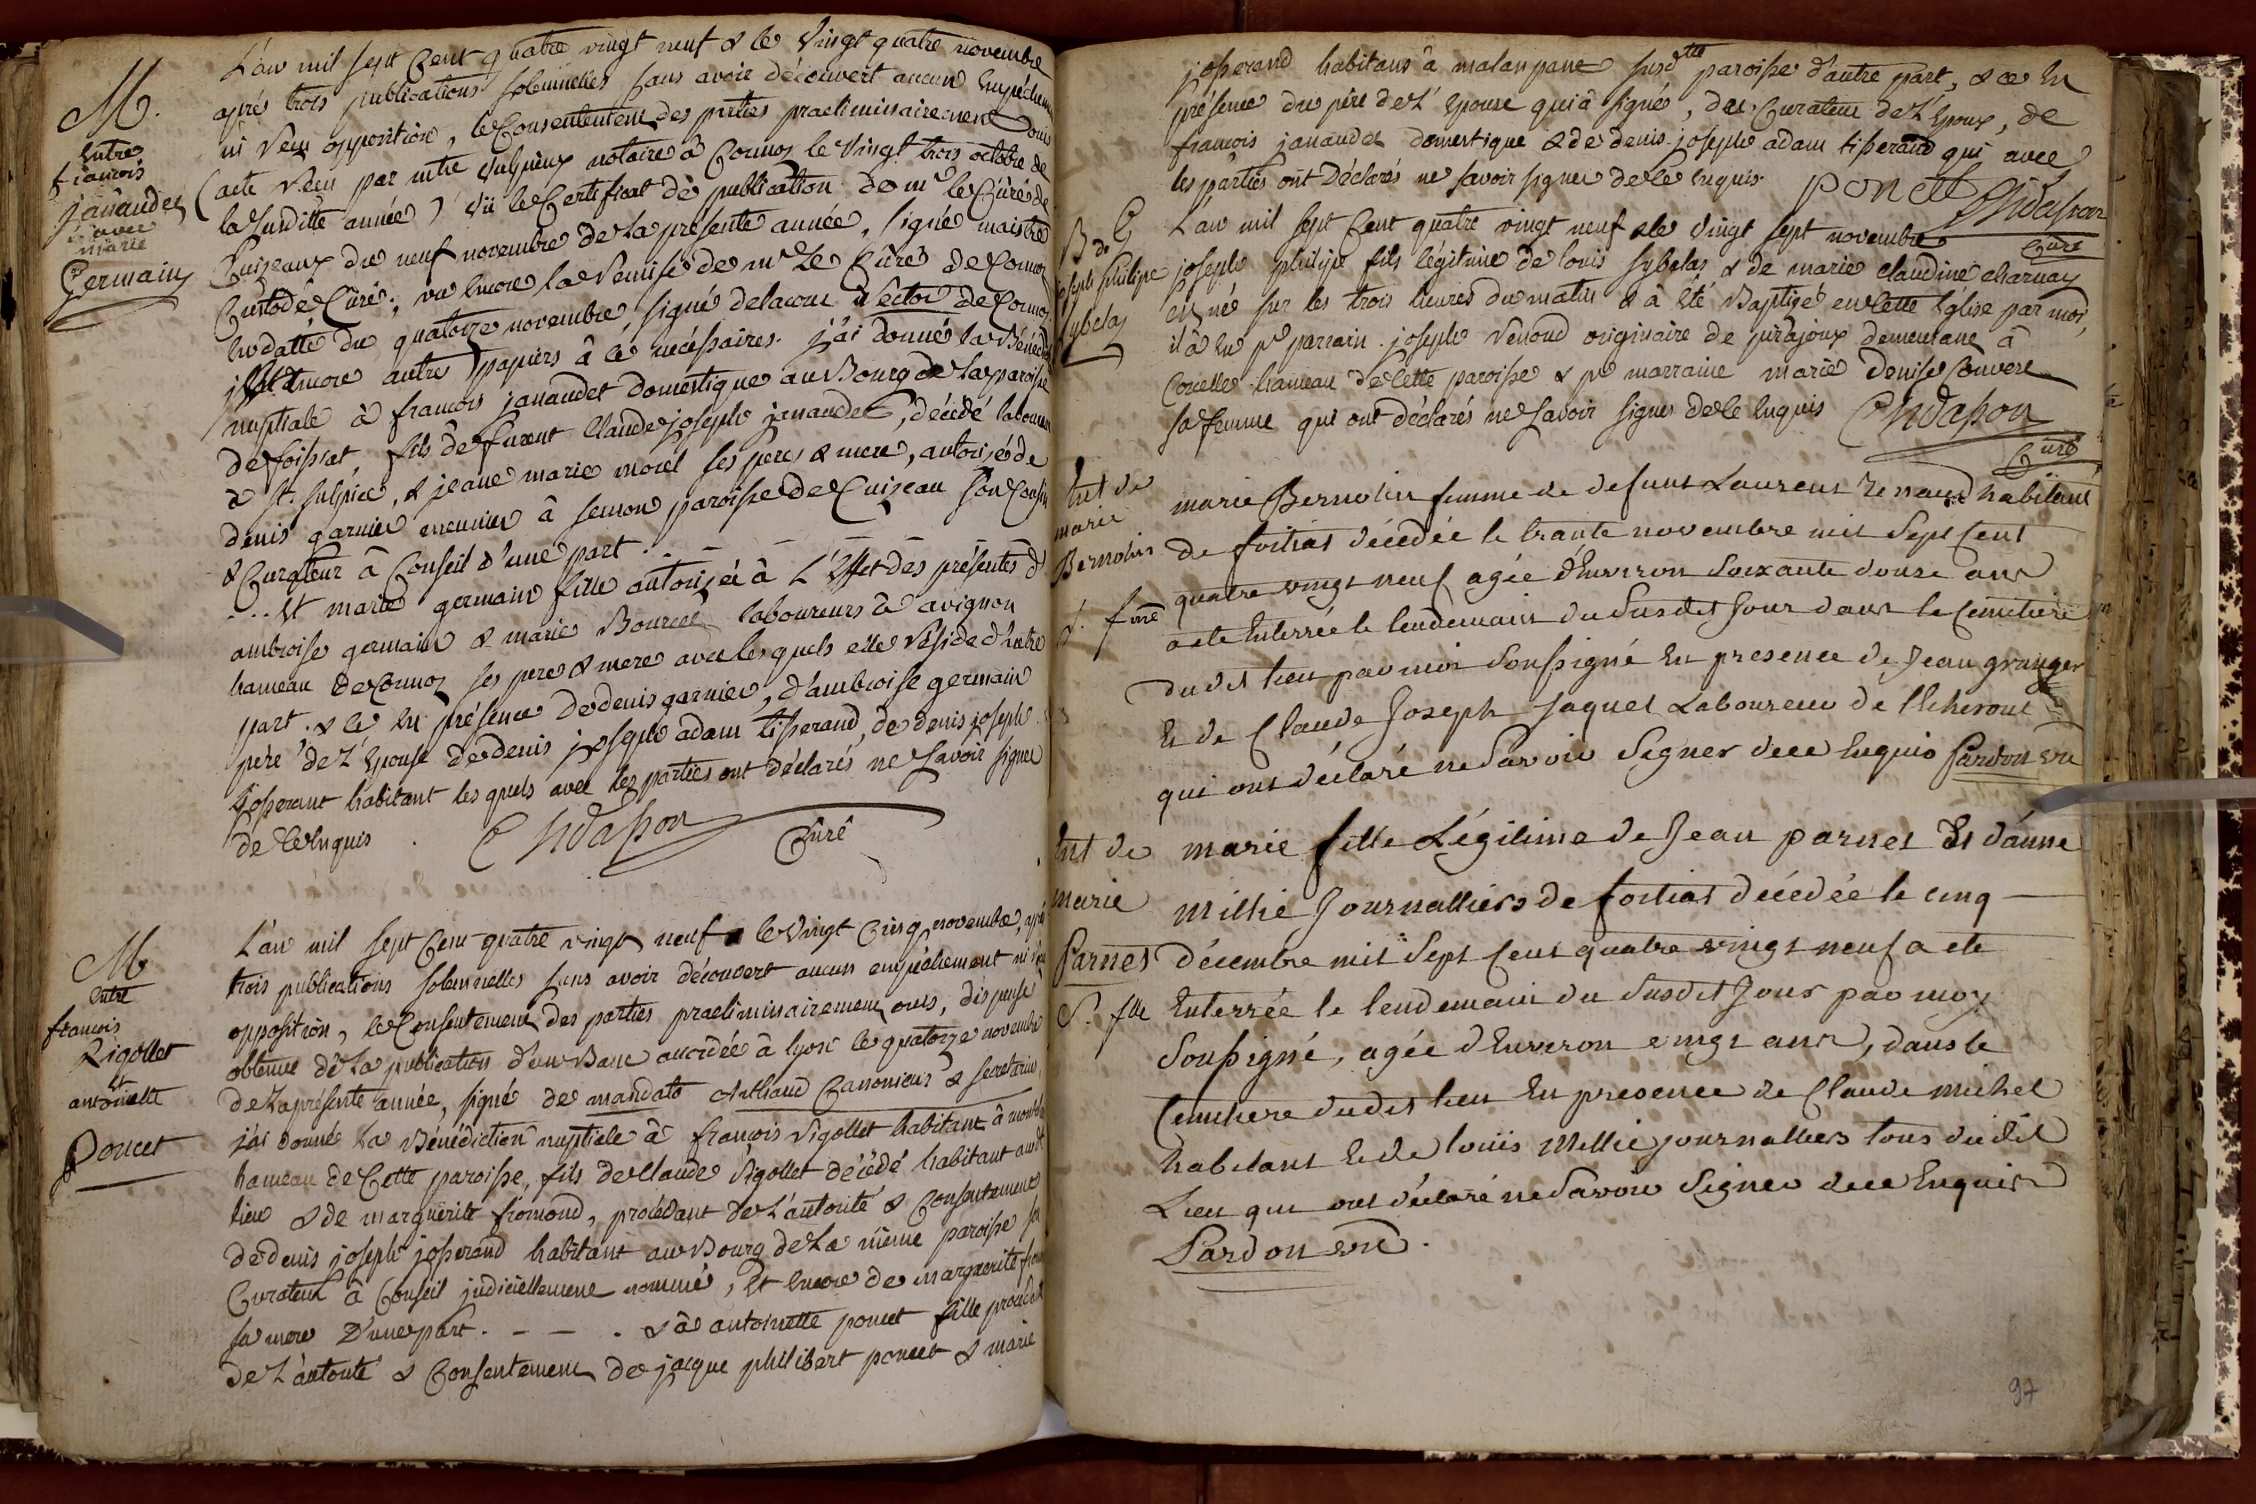 M.
Entre
francois
janaudet
& avec
marie
Germain
L'an mil sept Cent quatre vingt neuf & le vingt quatre novembre
aprés trois publications solemnelles sans avoir découvert aucun Empéchem
ni veu opposition, le Consentement des parties praeliminairement ouis
(acte reçu par mtre vulpieux notaire à Cormoz le vingt trois octobre de
la susditte année) vü le Certificat de publication de mr le Cüré de
Cuizeaux du neuf novembre de la présente année, signé maistre
Custode Cüré; vu encore la remise de mr Le Cüré de Cormoz
en datte du quatorze novembre signé delacour Rector de Cormoz
encore autres papiers à ce nécessaires. j'ai donné la Bénédic
nuptiale à francois janaudet domestique au Bourg de la paroisse
de foissiat, fils de furent Claude joseph janaudet, décédé laboureur
à st. sulpice, & jeanne marie morel ses pere & mere, autorisé de
denis garnier meunier à semon paroisse de Cuizeau son Cousin
& Curateur à Conseil d'une part. . — — — —
. . . Et marie germain fille autorisée à L'Effet des présentes d'
ambroise germain & marie Bourcet laboureurs à avignon
hameau de Cormoz ses pere & mere avec les quels elle réside d'autre
part. & ce En présence de denis garnier, d'ambroise germain
père de L'Epouse de denis joseph adam tisserand, de denis joseph
josserant habitant les quels avec les parties ont déclarés ne savoir signer
de ce Enquis . Chidasson Cüré
M.
entre
francois
Rigollet
et
antoinette
Poncet
L'an mil sept Cent quatre vingt neuf & le vingt Cinq novembre, apré
trois publications solemnelles sans avoir découvert aucun empéchement ni
opposition, le Consentement des parties praeliminairement ouis, dispense
obtenue de la publication d'un Banc accordée à lyon le quatorze novembre
de la présente année, signé de mandato Arthaud Canonicus & secretarius,
j'ai donné la Bénédiction nuptiale à françois rigollet habitant à
hameau de Cette paroisse, fils de Claude rigollet décédé habitant audt
lieu & de marguerite fromond, procédant de L'autorité & Consentement
de denis joseph josserand habitant au Bourg de La même paroisse
Curateur à Conseil judiciellement nommé, Et encore de marguerite
sa mere D'une part. — — . & à antoinette poncet fille procédant
de L'autorité & Consentement de jacque philibert poncet & marie
josserand habitans à malanpane susdtte paroisse d'autre part, & ce En
présence du père de L'Epouse qui à signé, du Curateur de L'Epoux, de
francois janaudet domestique & de denis joseph adam tisserand qui avec
les parties ont Déclarés ne savoir signer de ce enquis. poncet Chidasson
Cüré
B. de
joseph philipe
sybelas
L'an mil sept Cent quatre vingt neuf & le vingt sept novembre
joseph philipe fils légitime de louis sybelas & de marie claudine charnay
est né sur les trois heures du matin & à été Baptisé en Cette Eglise par moi,
il à eu pr parrain joseph renoud originaire de jurajoux demeurant à
Corcelle hameau de Cette paroisse & pr marraine marie denise Convert
sa femme qui ont déclarés ne savoir signer de ce enquis Chidasson
Cüré
Ent de
marie
Bernolin
S. fme
marie Bernolin femme de defunt Laurent Renaud habitant
de foitias décedée le trante novembre mil Sept Cent
quatre vingt neuf agée d'Environ Soixante douze ans
a ete Enterrée le lendemain du Susdit Jour dans le Cemetiere
du dit lieu par moi Soussigné En presence de Jean granger
Et de Claude Joseph Jaquet Laboureur de l'Echerout
qui ont déclaré ne Savoir Signer de ce Enquis Pardon vre
Ent de
marie
Parnet
S. flle
marie fille Légitime de Jean parnet Et d'anne
Millié Journalliers de foitiat décedée le cinq —
décembre mil Sept Cent quatre vingt neuf a ete
Enterrée le lendemain du Susdit Jour par moy
Soussigné, agée d'Environ vingt ans, dans le
Cemetiere dudit lieu En presence de Claude michel
habitant Et de loüis Millié journalliers tous dudit
Lieu qui ont déclaré ne Savoir Signer de ce Enquis
Pardon vre.
97